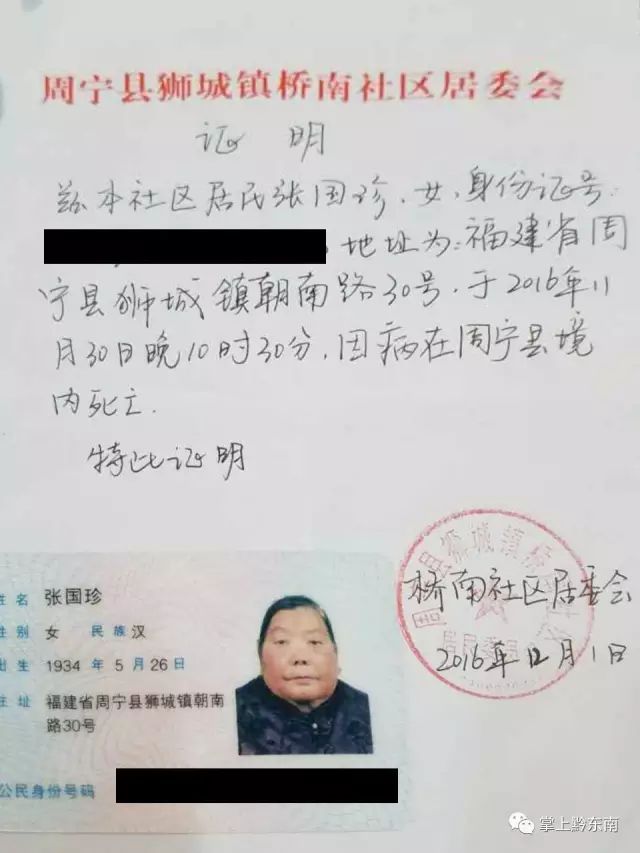 周宁县狮城镇桥南社区居委会
证 明
兹本社区居民张国珍，女，身份证号：
地址为：福建省周
宁县狮城镇朝南路30号，于2016年11
月30日晚10时30分，因病在周宁县境
内死亡．
特此证明
狮城镇桥
桥南社区居委会
居民委员会
2016年12月1日
姓 名 张国珍
性 别 女 民 族 汉
出 生 1934 年 5 月 26 日
住 址 福建省周宁县狮城镇朝南
路30号
公民身份号码
掌上黔东南